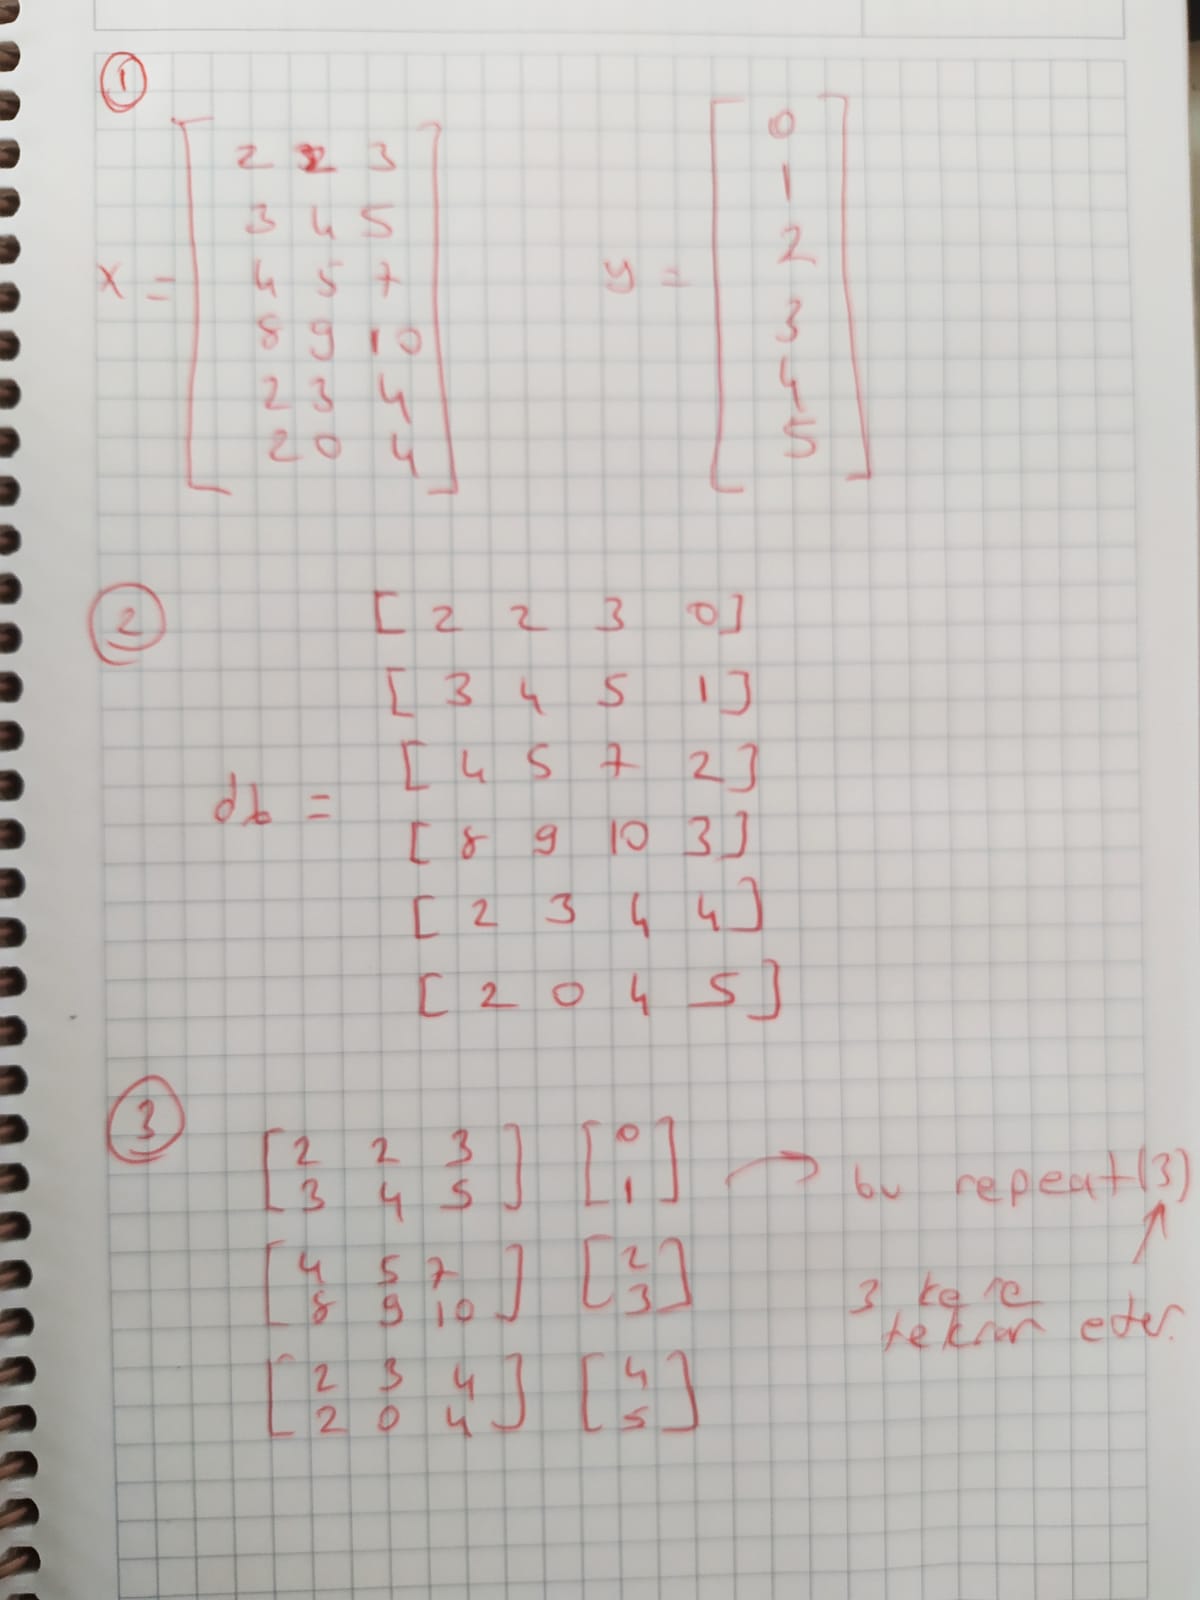 1
x = [ 2 2 3
3 4 5
4 5 7
8 9 10
2 3 4
2 0 4 ]
y = [ 0
1
2
3
4
5 ]
2
db =
[ 2 2 3 0 ]
[ 3 4 5 1 ]
[ 4 5 7 2 ]
[ 8 9 10 3 ]
[ 2 3 4 4 ]
[ 2 0 4 5 ]
3
[ 2 2 3 [ 0
3 4 5 ] 1 ] → bu repeat(3)
[ 4 5 7 [ 2
8 9 10 ] 3 ]
[ 2 3 4 [ 4
2 0 4 ] 5 ]
3 kere
tekrar eder.